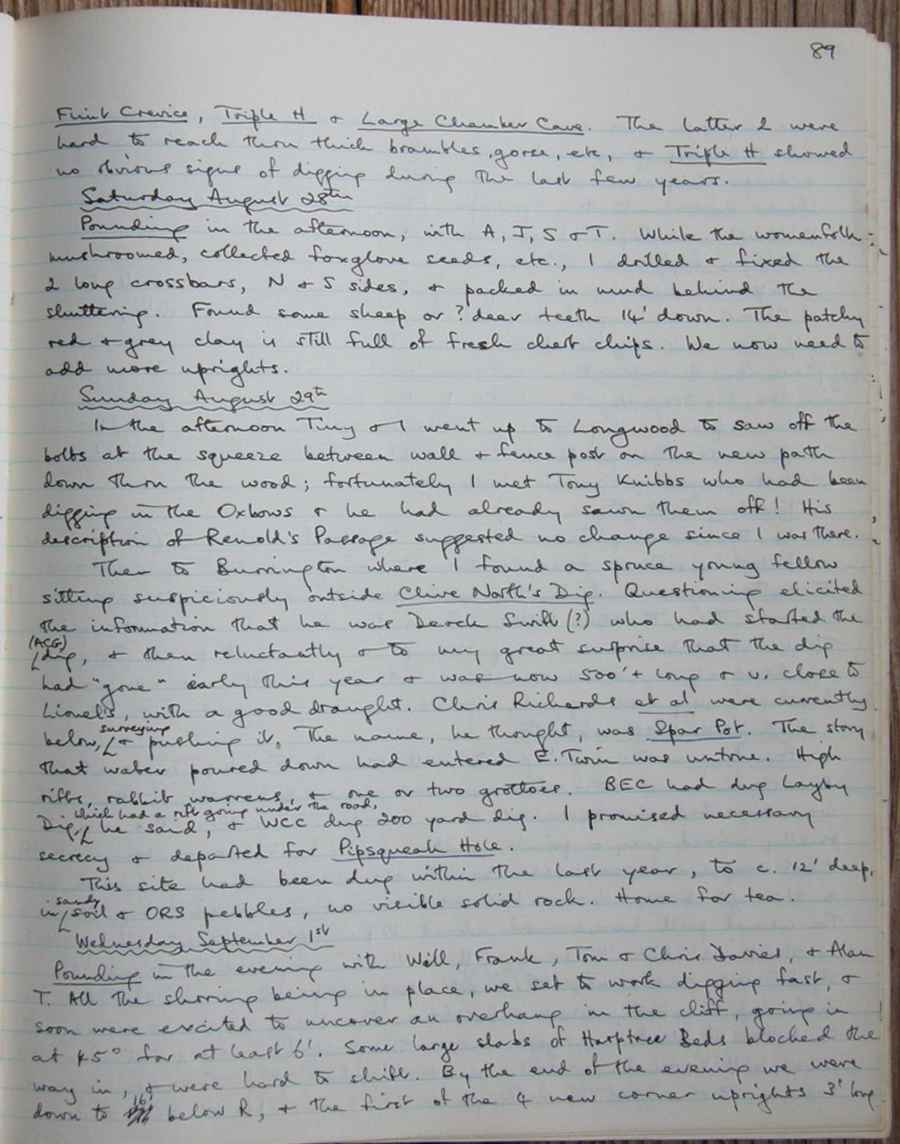 89
Flint Crevice, Triple H & Large Chamber Cave. The latter 2 were
hard to reach thru thick brambles, gorse, etc, & Triple H showed
no obvious signs of digging during the last few years.
Saturday August 28th
Pounding in the afternoon, with A, J, S & T. While the womenfolk
mushroomed, collected foxglove seeds, etc., I drilled & fixed the
2 long crossbars, N & S sides, & packed in mud behind the
shuttering. Found some sheep or ? deer teeth 14' down. The patchy
red & grey clay is still full of fresh chert chips. We now need to
add more uprights.
Sunday August 29th
In the afternoon Tiny & I went up to Longwood to saw off the
bolts at the squeeze between wall & fence post on the new path
down thru the wood; fortunately I met Tony Knibbs who had been
digging in the Oxbows & he had already sawn them off! His
description of Renold's Passage suggested no change since I was there.
Then to Burrington where I found a spruce young fellow
sitting suspiciously outside Clive North's Dig. Questioning elicited
the information that he was Derek Swift (?) who had started the
(ACG)
dig, & then reluctantly & to my great surprise that the dig
had "gone" early this year & was now 500'+ long & v. close to
Lionel's, with a good draught. Chris Richards et al were currently
surveying
below, & pushing it. The name, he thought, was Spar Pot. The story
that water poured down had entered E. Twin was untrue. High
rifts, rabbit warrens, & one or two grottoes. BEC had dug Layby
which had a rift going under the road,
Dig, he said, & WCC dug 200 yard dig. I promised necessary
secrecy & departed for Pipsqueak Hole.
This site had been dug within the last year, to c. 12' deep,
sandy
in soil & ORS pebbles, no visible solid rock. Home for tea.
Wednesday September 1st
Pounding in the evening with Will, Frank, Tom & Chris Davies, & Alan
T. All the shoring being in place, we set to work digging fast, &
soon were excited to uncover an overhang in the cliff, going in
at 45° for at least 6'. Some large slabs of Harptree Beds blocked the
way in, & were hard to shift. By the end of the evening we were
16'
down to below R, & the first of the 4 new corner uprights 3' long